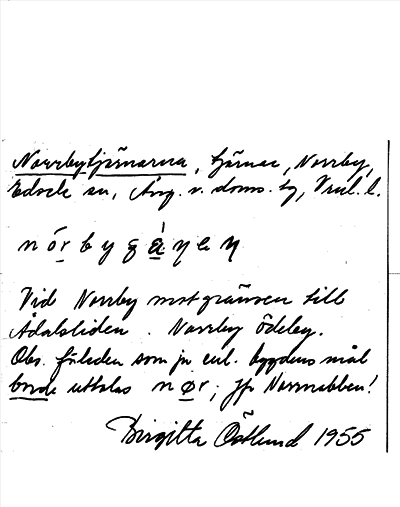 Norrbytjärnarna, tjärnar, Norrby,
Edsele sn, Ång. v. doms. tg, Vnl. l.
nórbyɕä̀ɳeɳ
Vid Norrby mot gränsen till
Ådalsliden. Norrby ödeby.
Obs. förleden som jn enl. bygdens mål
borde uttalas nør; jfr Norrnabben!
Birgitta Östlund 1955